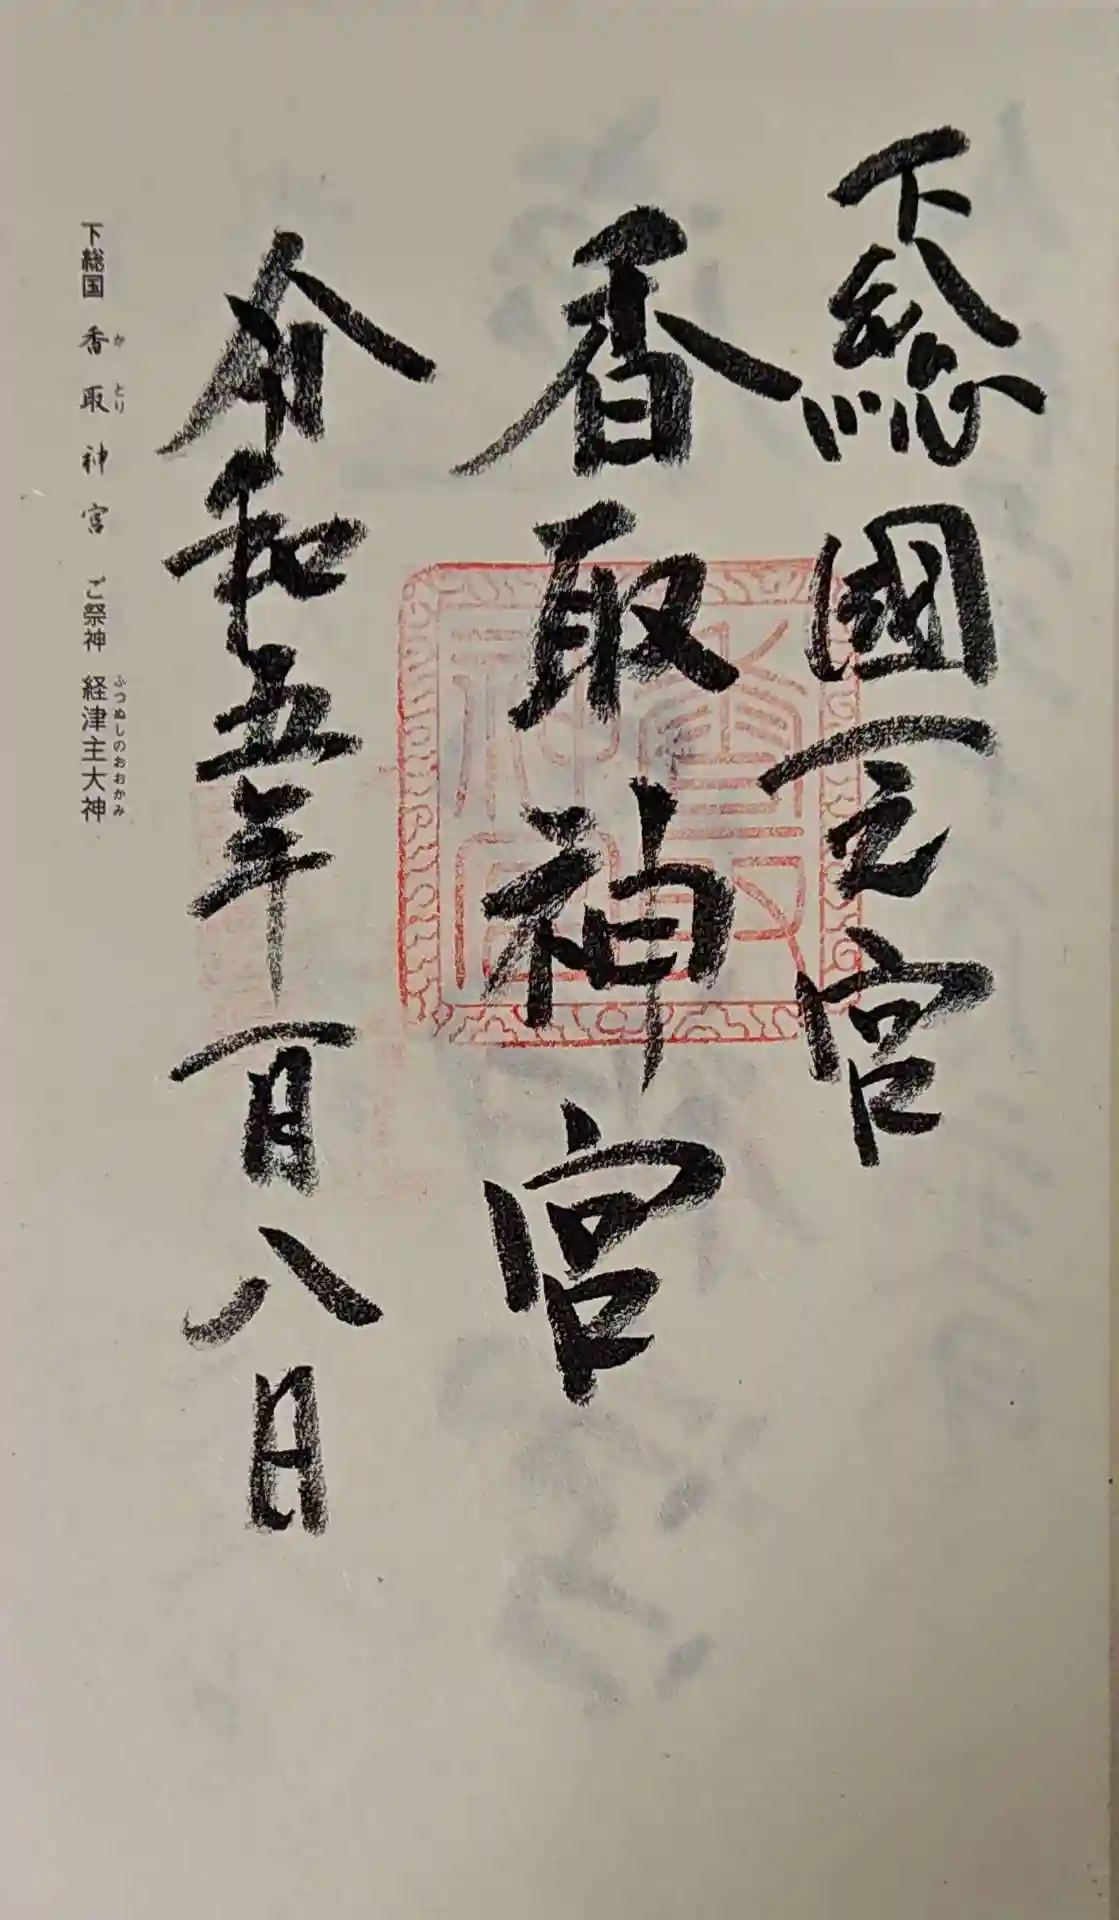 下總國一之宮
香取神宮
令和五年一月八日
下総国 香取神宮 ご祭神 経津主大神
かとり ふつぬしのおおかみ
香取神宮